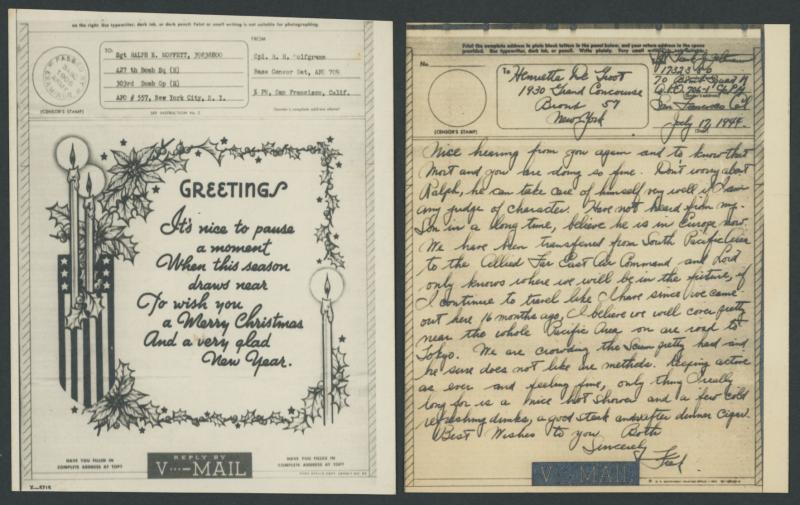 on the right. Use typewriter, dark ink, or dark pencil. Faint or small writing is not suitable for photographing.
TO:
Sgt RALPH E. MOFFETT, 39838800
427 th Bomb Sq (H)
303rd Bomb Gp (H)
APO # 557, New York City, N. Y.
FROM
Cpl. H. H. Wolfgramm
Base Censor Det, APO 709
% PM, San Francisco, Calif.
(Sender's complete address above)
(CENSOR'S STAMP)
SEE INSTRUCTION NO. 2
GREETINGS
It's nice to pause
a moment
When this season
draws near
To wish you
a Merry Christmas
And a very glad
New Year.
HAVE YOU FILLED IN
COMPLETE ADDRESS AT TOP?
REPLY BY
V···—MAIL
HAVE YOU FILLED IN
COMPLETE ADDRESS AT TOP?
Print the complete address in plain block letters in the panel below, and your return address in the space
provided. Use typewriter, dark ink, or pencil. Write plainly. Very small writing is not suitable.
No.
To
Henrietta De Groot
1930 Grand Concourse
Bronx 57
New York
San Francisco Cal
July 17, 1944.
(CENSOR'S STAMP)
Nice hearing from you again and to know that
Mort and you are doing so fine. Don't worry about
Ralph, he can take care of himself very well if I am
any judge of character. Have not heard from my
Son in a long time, believe he is in Europe now.
We have been transferred from South Pacific area
to the Allied Far East Air Command and Lord
only knows where we will be in the picture, if
I continue to travel like I have since we came
out here 16 months ago, I believe we will cover pretty
near the whole Pacific Area on are road to
Tokyo. We are crowding the Scum pretty hard and
he sure does not like are methods. Keeping active
as ever and feeling fine, only thing I really
long for is a nice hot shower and a few cold
refreshing drinks, a good steak and after dinner Cigar.
Best Wishes to you Both
Sincerely
Fred
V···—MAIL